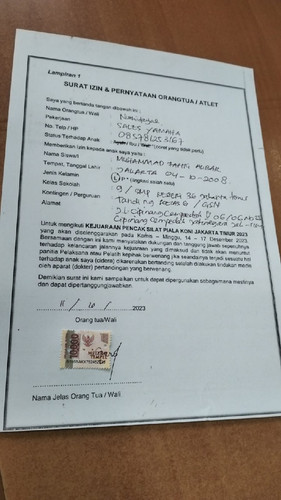 Lampiran 1
SURAT IZIN & PERNYATAAN ORANGTUA / ATLET
Saya yang bertanda tangan dibawah ini :
Nama Orangtua / Wali :
Pekerjaan : SALES YAMAHA
No. Telp / HP : 085781253167
Status Terhadap Anak : Ayah / Ibu / Wali (coret yang tidak perlu)
Memberikan izin kepada anak saya yang :
Nama Siswa/i : MUHAMMAD AKBAR
Tempat, Tanggal Lahir : JAKARTA 04-10-2008.
Jenis Kelamin : L / P (lingkari salah satu)
Kelas Sekolah : 9 / SMP NEGERI 36 Jakarta Timur
Kontingen / Perguruan : / GSN
Alamat : JL. Cipinang
Cipinang
Untuk mengikuti KEJUARAAN PENCAK SILAT PIALA KONI JAKARTA TIMUR 2023
yang akan diselenggarakan pada Kamis – Minggu, 14 – 17 Desember 2023.
Bersamaan dengan ini kami menyatakan dukungan dan tanggung jawab sepenuhnya
terhadap kelancaran jalannya kejuaraan yang dimaksud dan tidak akan menuntut
panitia Pelaksana atau Pelatih kejelian berwenang jika seandainya terjadi sesuatu hal
terhadap anak saya (cidera) dikarenakan bertanding setelah dilakukan tindakan medis
oleh aparat (dokter) pertandingan yang berwenang.
Demikian surat ini kami sampaikan untuk dapat dipergunakan sebagaimana mestinya
dan dapat dipertanggungjawabkan.
11 / 10 / 2023
Orang tua/Wali
10000
Nama Jelas Orang Tua / Wali